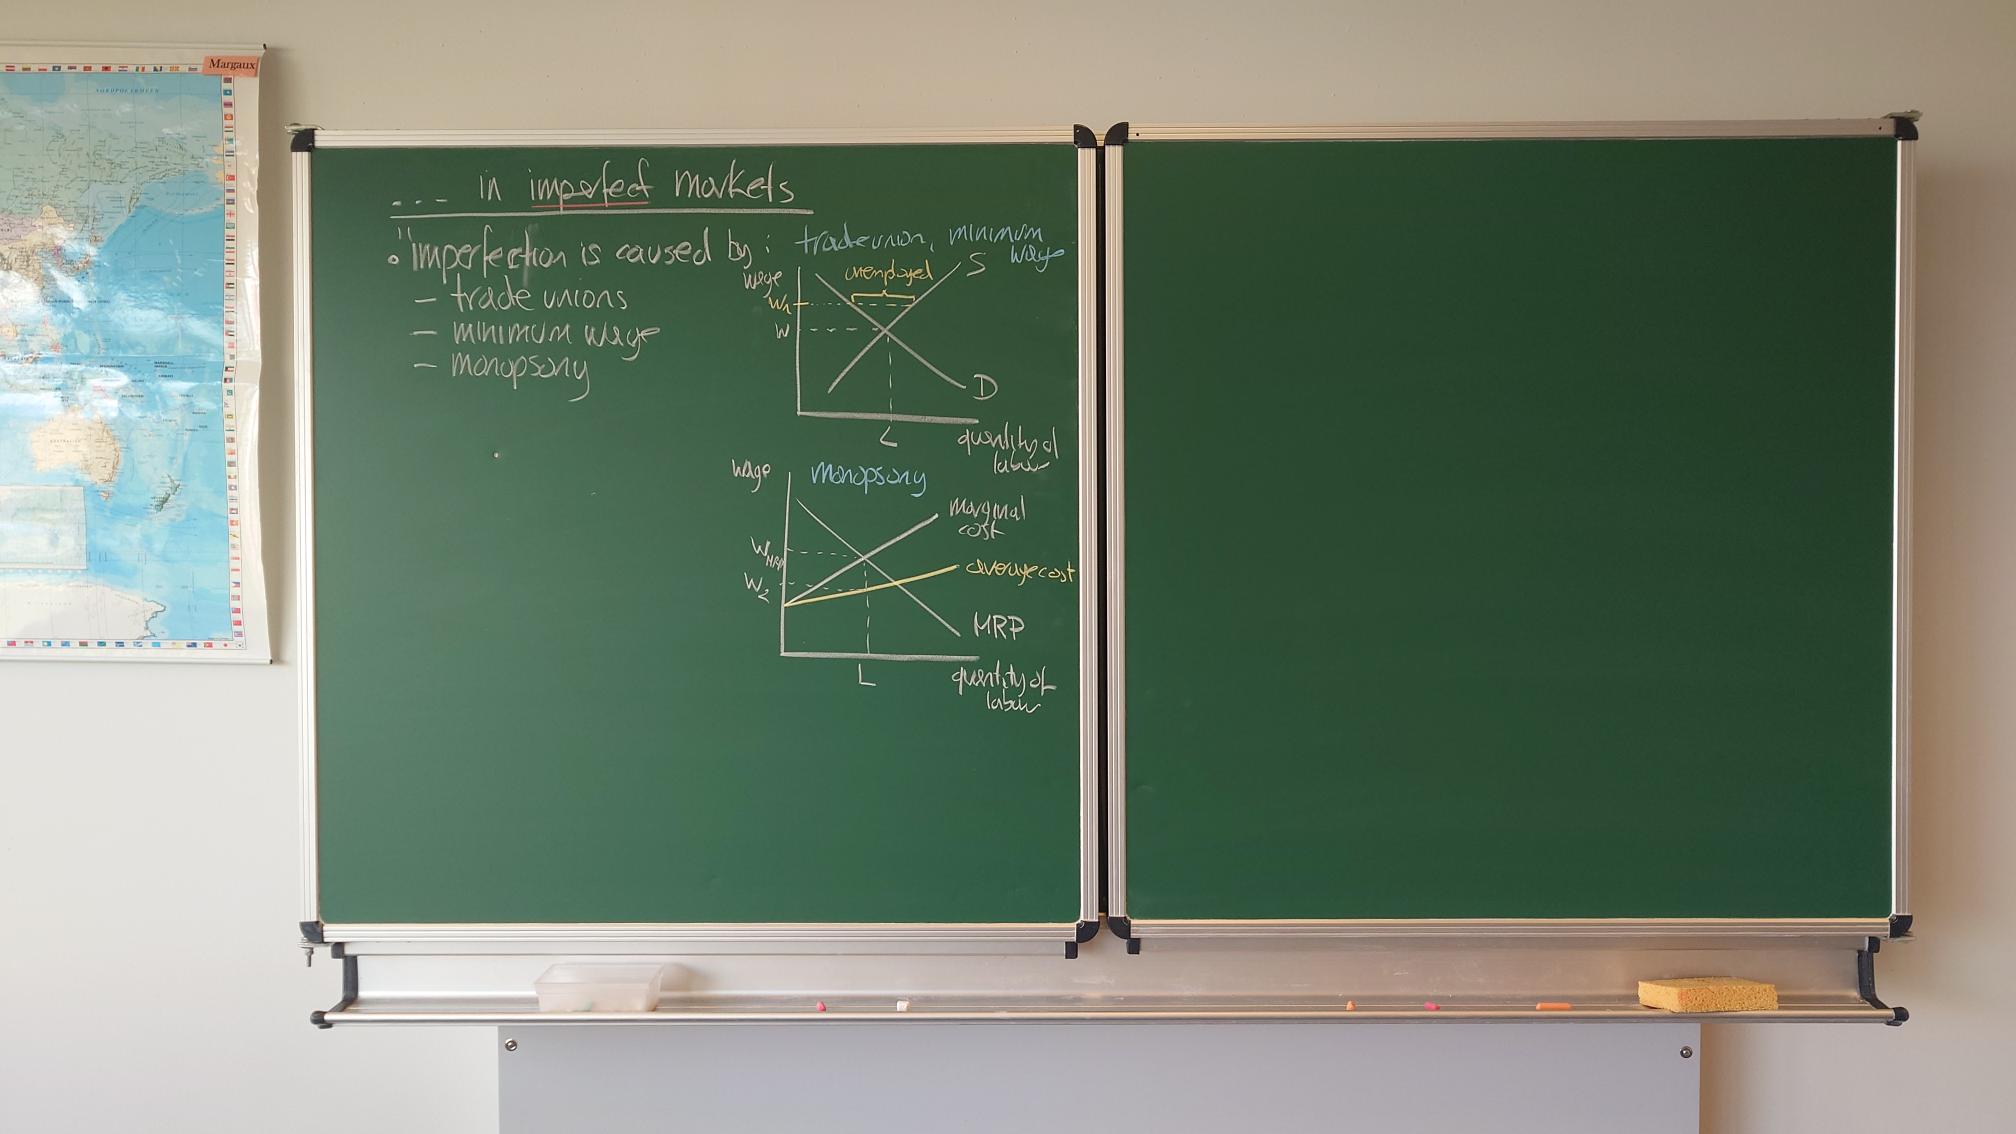 Margaux
NORDPOLARMEER
AUSTRALIEN
... in imperfect markets
• Imperfection is caused by:
– trade unions
– minimum wage
– monopsony
trade union, minimum
wage
wage
unemployed
S
W1
W
D
L
quantity of
labour
wage
monopsony
marginal
cost
WMRP
average cost
W2
MRP
L
quantity of
labour